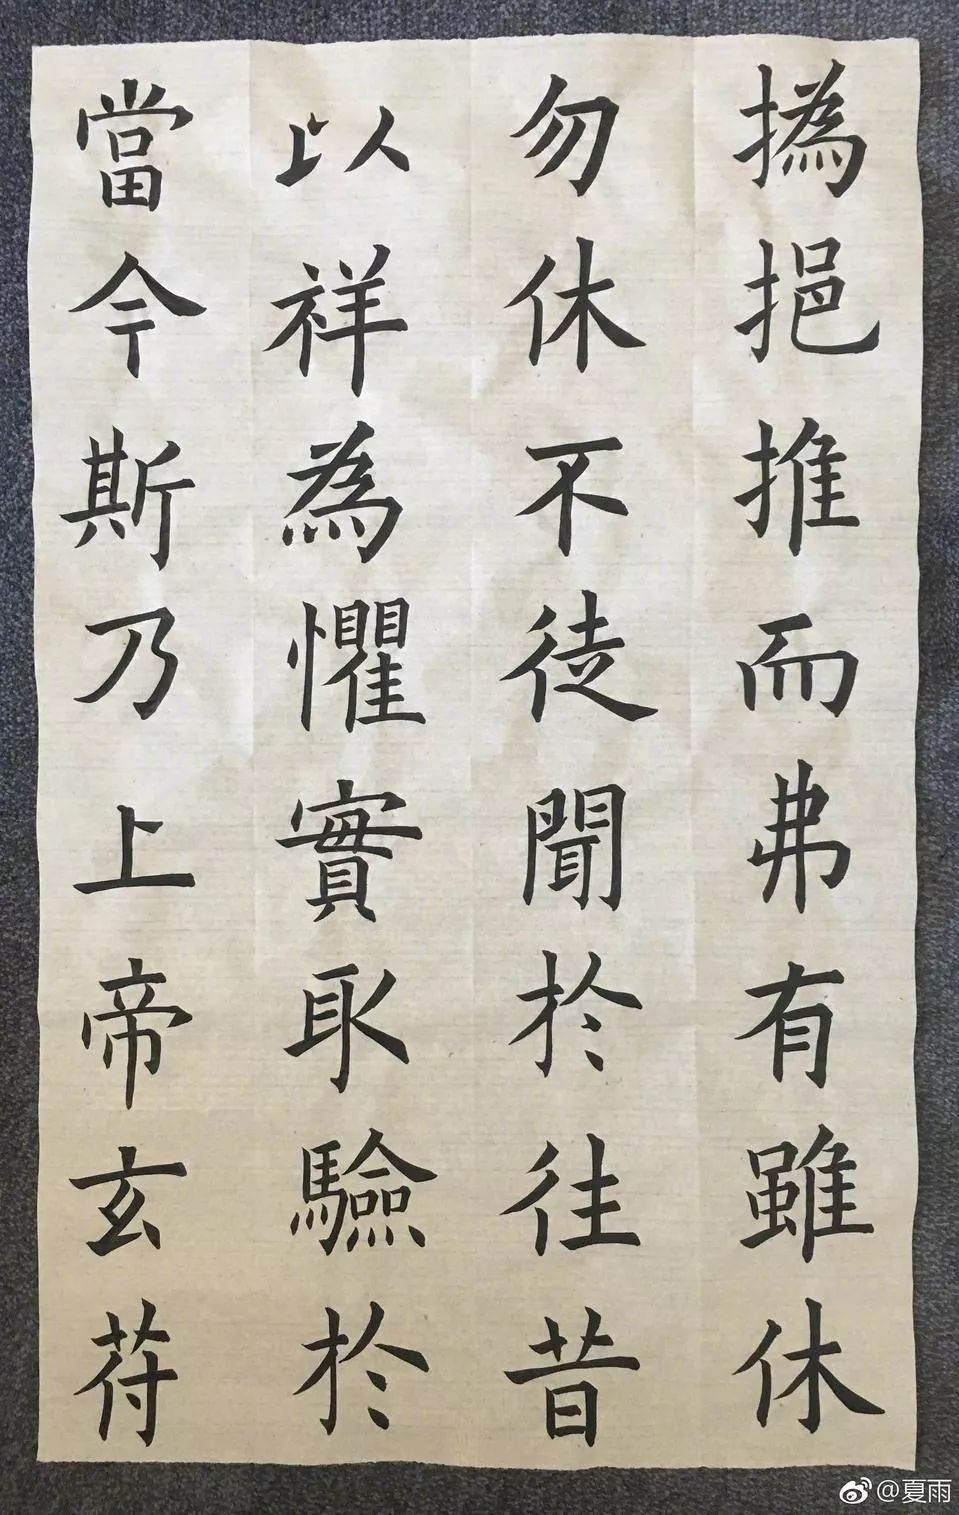 撝挹推而弗有雖休
勿休不徒聞於往昔
以祥為懼實取驗於
當今斯乃上帝玄符
@夏雨